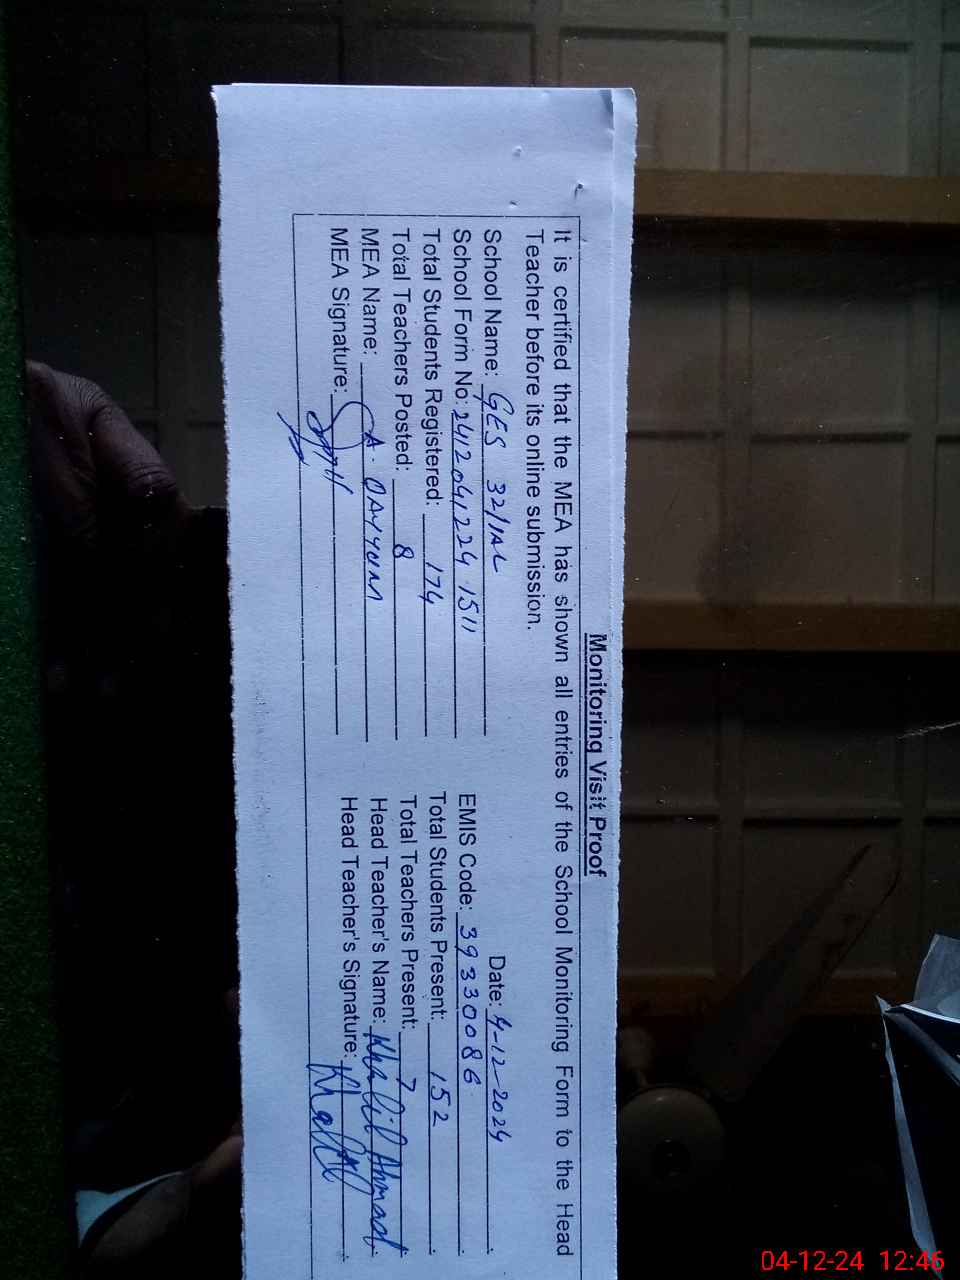 Monitoring Visit Proof
It is certified that the MEA has shown all entries of the School Monitoring Form to the Head
Teacher before its online submission.
Date: 4-12-2024
School Name: GES 32/1AL
School Form No: 2412041224 1511 EMIS Code: 39330086
Total Students Registered: 174 Total Students Present: 152
Total Teachers Posted: 8 Total Teachers Present: 7
MEA Name: A. QAYYUM Head Teacher's Name: Khalil Ahmad
MEA Signature: Head Teacher's Signature:
04-12-24 12:46